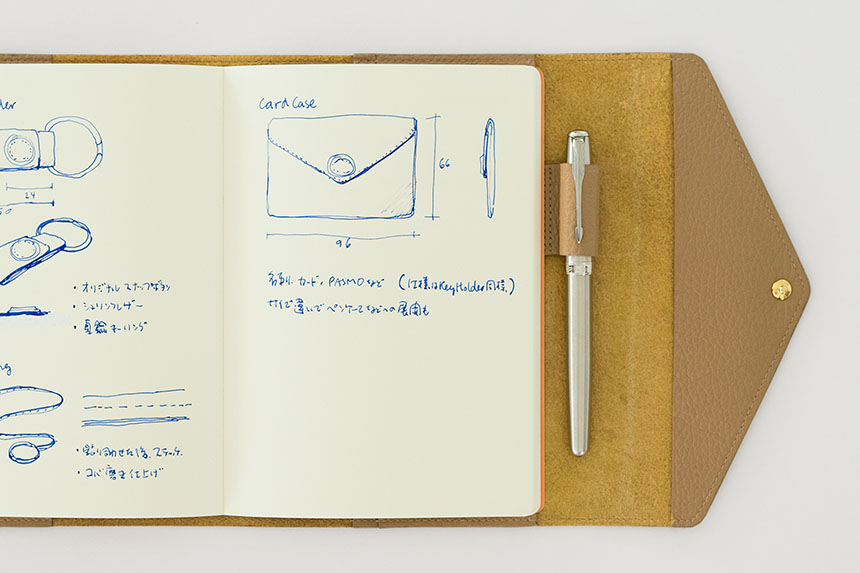 der
24
60
・オリジナルスナップボタン
・シュリンクレザー
・真鍮キーリング
ng
・貼り合わせた後、ステッチ。
・コバ磨き仕上げ
Card Case
66
96
名刺、カード、PASMOなど （仕様はKeyHolder同様。）
サイズ違いでペンケースなどへの展開も